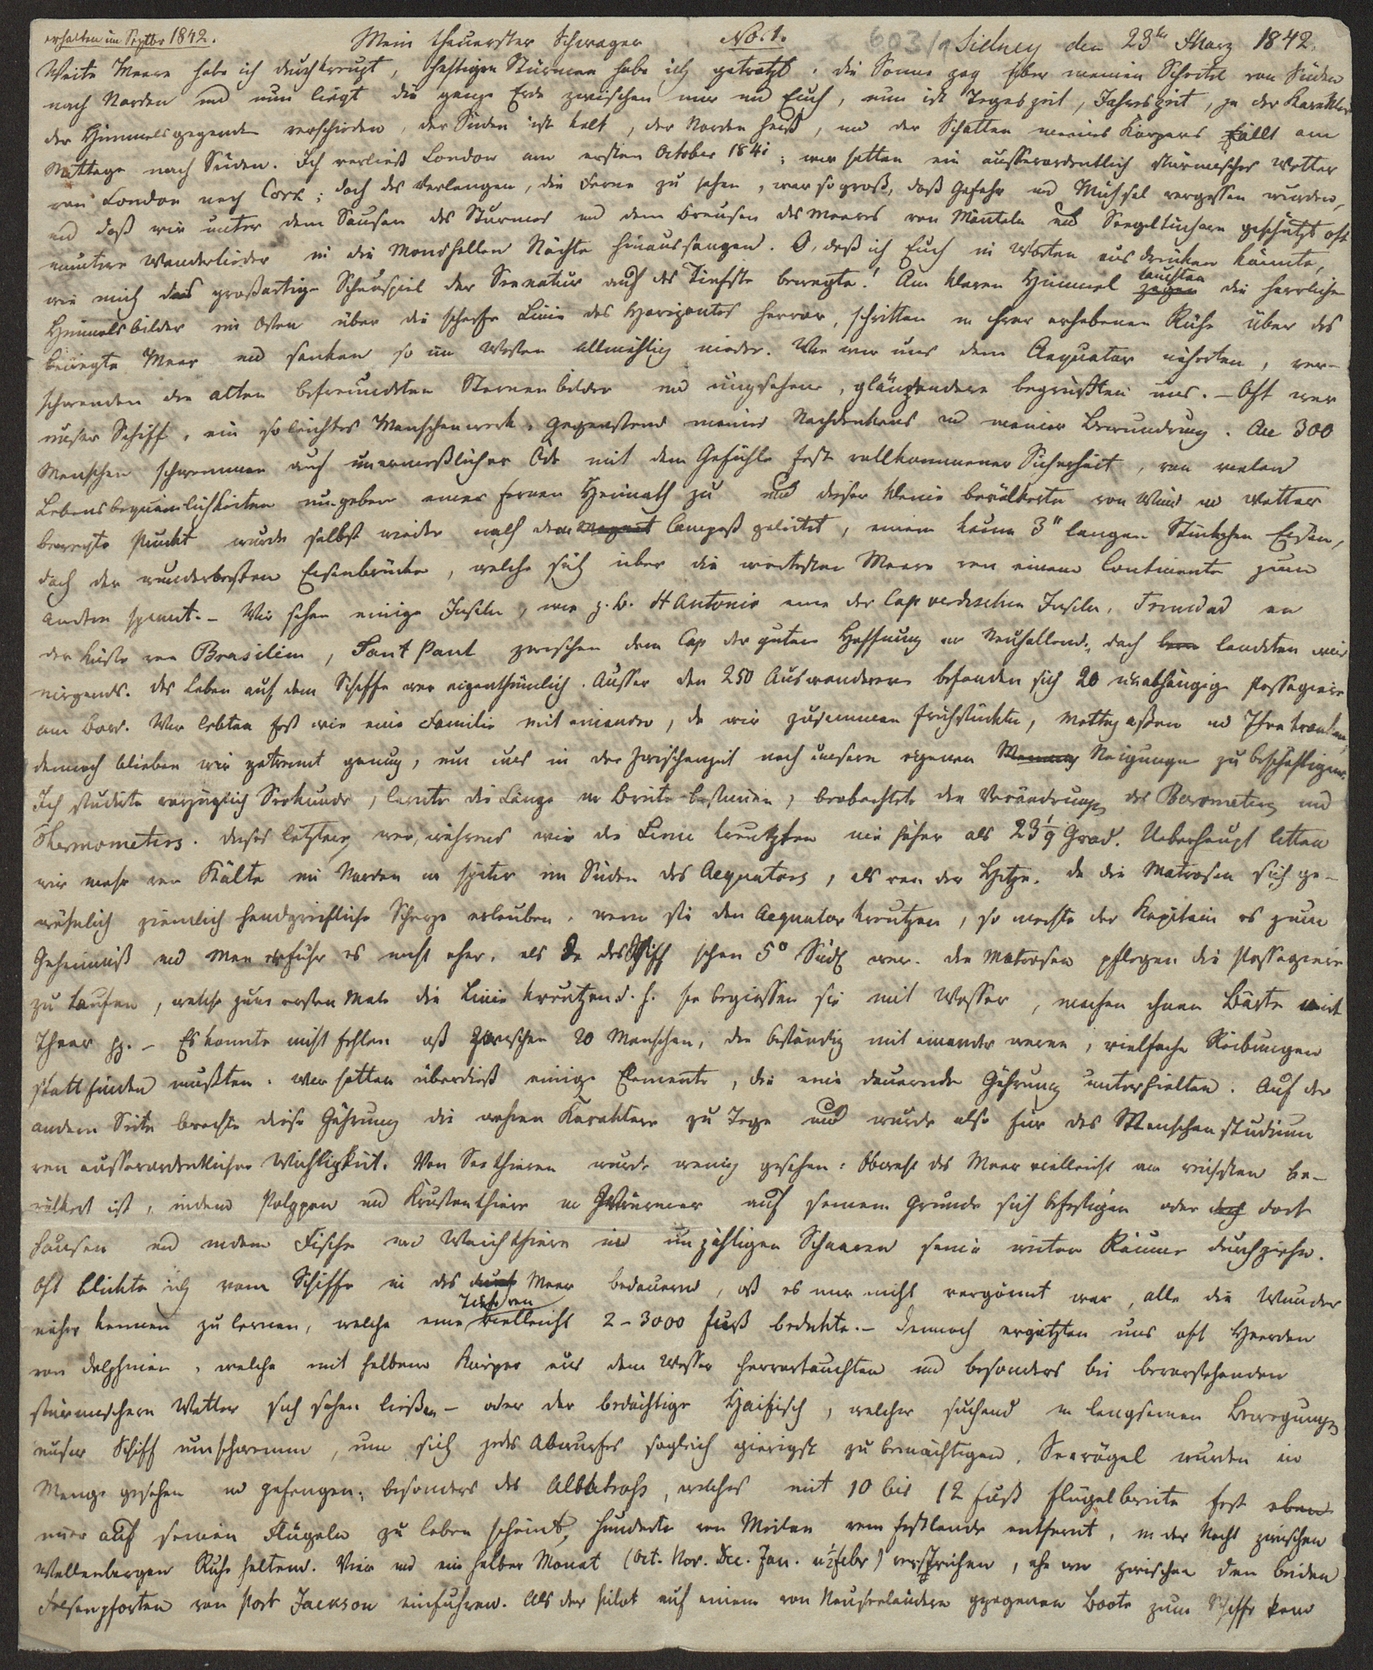 erhalten im Septbr 1842.
Mein theuerster Schwager No. 1. 603/9 Sidney den 23ten März 1842.
Weite Meere habe ich durchkreuzt, heftigen Stürmen habe ich getrotzt, die Sonne zog über meinen Scheitel von Süden
nach Norden und nun liegt die ganze Erde zwischen mir und Euch, nun ist Tageszeit, Jahreszeit, ja der Karakter
der Himmelsgegenden verschieden, der Süden ist kalt, der Norden heiß, und der Schatten meines Körpers fällt am
Mittage nach Süden. Ich verließ London am ersten October 1841; wir hatten ein ausserordentlich stürmisches Wetter
von London nach Cork; doch das Verlangen, die Ferne zu sehen, war so groß, daß Gefahr und Mühsal vergessen wurden,
und daß wir unter dem Sausen des Sturmes und dem Brausen des Meeres von Mänteln und Seegeltüchern geschützt oft
muntere Wanderlieder in die Mondhellen Nächte hinaussangen. O, daß ich Euch in Worten ausdrücken könnte,
wie mich das großartige Schauspiel der Seenatur auf das Tiefste bewegte! Am klaren Himmel zogen tauchten die herrlichen
Himmelsbilder im Osten über die scharfe Linie des Horizontes hervor, schritten in ihrer erhabenen Ruhe über das
bewegte Meer und sanken so im Westen allmählig nieder. Wie wir uns dem Aequator näherten, ver-
schwanden die alten befreundeten Sternenbilder und ungesehene, glänzendere begrüßten uns. – Oft war
unser Schiff, ein so leichtes Menschenwerk, Gegenstand meines Nachdenkens und meiner Bewundrung. An 300
Menschen schwammen auf unermeßlicher Öde mit dem Gefühle fast vollkommener Sicherheit, von vielen
Lebensbequemlichkeiten umgeben einer fernen Heimath zu und dieser kleine bevölkerte von Wind und Wetter
bewegte Punkt wurde selbst wieder nach dem Magnet Compaß geleitet, einem kaum 3" langen Stückchen Eisen,
doch der wunderbarsten Eisenbrücke, welche sich über die weitesten Meere von einem Continente zum
andern spannt. – Wir sahen einige Inseln, wie z. B. St Antonio eine der Capverdischen Inseln, Trinidad an
der Küste von Brasilien, Sant Paul zwischen dem Cap der guten Hoffnung und Neuholland, doch landeten wir
nirgends. Das Leben auf dem Schiffe war eigenthümlich. Ausser den 250 Auswanderern befanden sich 20 unabhängige Passagiere
am Bord. Wir lebten fast wie eine Familie mit einander, da wir zusammen frühstückten, mittag aßen und Thee tranken,
dennoch blieben wir getrennt genug, um uns in der Zwischenzeit nach unseren eigenen Neigungen zu beschäftigen.
Ich studirte vorzüglich Seekunde, lernte die Länge und Breite bestimmen, beobachtete die Verändrungen des Barometers und
Thermometers. Dieses letztere war, während wir die Linie kreutzten nie höher als 23 1/9 Grad. Ueberhaupt litten
wir mehr von Kälte im Norden und später im Süden des Aequators, als von der Hitze. Da die Matrosen sich ge-
wöhnlich ziemlich handgreifliche Scherze erlauben, wenn sie den Aequator kreutzen, so machte der Kapitain es zum
Geheimniß und man erfuhr es nicht eher, als da das Schiff schon 5° Südl war. Die Matrosen pflegen die Passagiere
zu taufen, welche zum ersten Male die Linie kreutzen d. h. sie begiessen sie mit Wasser, machen ihnen Bärte mit
Theer pp. – Es konnte nicht fehlen daß zwischen 20 Menschen, die beständig mit einander waren, vielfache Reibungen
statt finden mußten. Wir hatten überdieß einige Elemente, die eine dauernde Gährung unterhielten. Auf der
andern Seite brachte diese Gährung die wahren Karaktere zu Tage und wurde also für das Menschenstudium
von ausserordentlicher Wichtigkeit. Von Seethieren wurde wenig gesehen: Obwohl das Meer vielleicht am reichsten be-
völkert ist, indem Polypen und Krustenthiere und Gewürmer auf seinem Grunde sich befestigen oder doch dort
hausen und indem Fische und Weichthiere in unzähligen Schaaren seine weiten Räume durchziehn.
Oft blickte ich vom Schiffe in das Meer bedauernd, daß es mir nicht vergönnt war, alle die Wunder
näher kennen zu lernen, welche eine Tiefe von vielleicht 2–3000 Fuß bedeckte. – Dennoch ergötzten uns oft Heerden
von Delphinen, welche mit halbem Körper aus dem Wasser hervortauchten und besonders bei bevorstehendem
stürmischem Wetter sich sehen ließen – oder der bedächtige Haifisch, welcher suchend in langsamen Bewegungen
unser Schiff umschwamm, um sich jedes Abwurfes sogleich gierigst zu bemächtigen. Seevögel wurden in
Menge gesehen und gefangen; besonders des Albatross, welches mit 10 bis 12 Fuß Flügelbreite fast eben
nur auf seinen Flügeln zu leben scheint, hunderte von Meilen vom Festlande entfernt, in der Nacht zwischen
Wellenbergen Ruhe haltend. Vier und ein halber Monat (Oct. Nov. Dec. Jan. u ½ Febr) verstrichen, ehe wir zwischen den beiden
Felsenpforten von Port Jackson einfuhren. Als der Pilot auf einem von Neuseeländern gezogenen Boote zum Schiffe kam